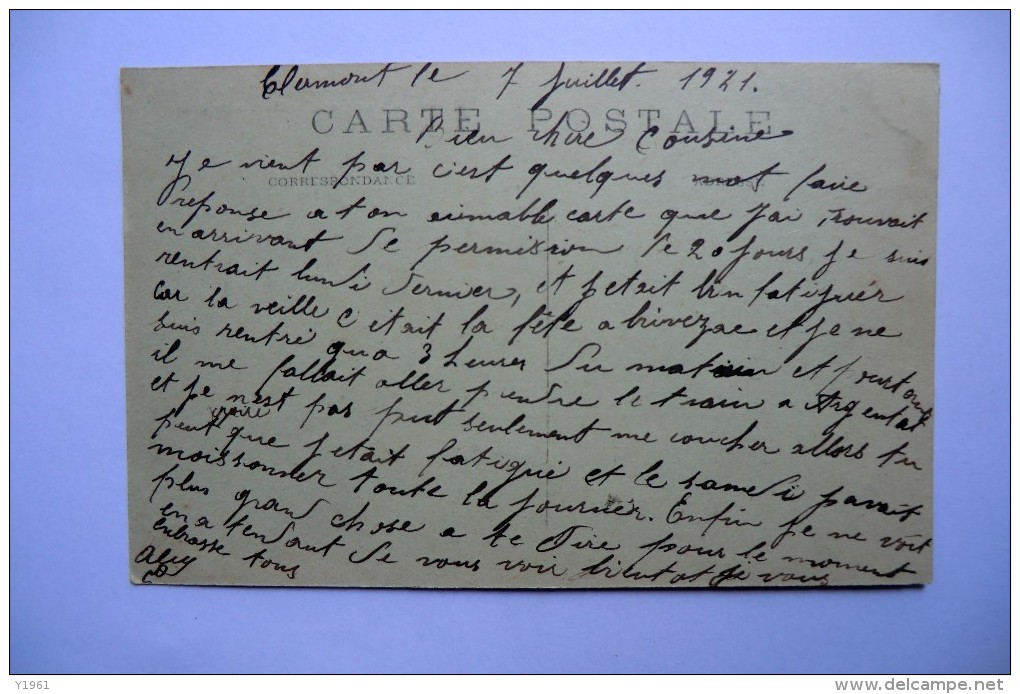 Clermont le 7 Juillet 1921.
CARTE POSTALE
Bien chere Cousine
Je vient par c'est quelques mot faire
CORRESPONDANCE ADRESSE
reponse a ton aimable carte que J'ai trouvait
en arrivant de permission de 20 jours je suis
rentrait lundi dernier, et jetait bin fatiguér
car la veille c'etait la fête a brivezac et je ne
suis rentré qu'a 3 heures du matin et pourtant
il me fallait aller prendre le train a Argentat
et je n'est pas put seulement me coucher allors tu
peut croire que jetait fatigué et le samedi javait
moissonner toute la journér. Enfin je ne voit
plus grand chose a te dire pour le moment
en atendant de vous voir bientot je vous
enbrasse tous
Y1961
www.delcampe.net